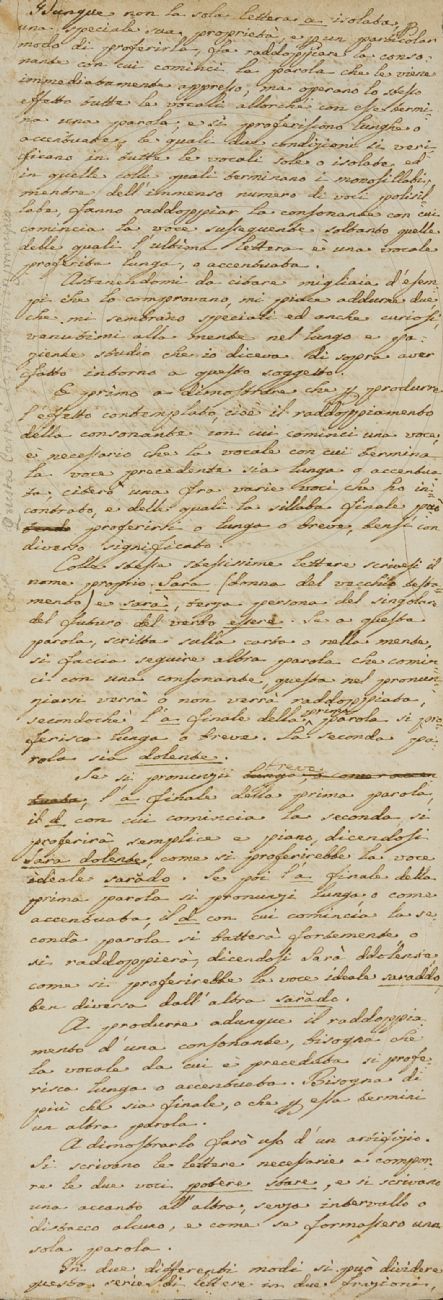 Dunque non la sola lettera a isolata, p
una speciale sua proprietà, e p un particolar
modo di proferirla, fa raddoppiare la conso=
nante con cui cominci la parola che le viene
immediatamente appresso; ma operano lo stesso
effetto tutte le vocali allorchè con esse termi=
na una parola, e si proferiscono lunghe o
accentuate, le quali due condizioni si veri=
ficano in tutte le vocali sole o isolate, ed
in quelle colle quali terminano i monosillabi,
mentre dell'immenso numero di voci polisil=
labe, fanno raddoppiar la consonante con cui
comincia la voce susseguente soltanto quelle
delle quali l'ultima lettera è una vocale
proferita lunga, o accentuata.
Astenendomi da citare migliaia d'esem
pi che lo comprovano, mi piace addurne due
che mi sembrano speciali ed anche curiosi
venutimi alla mente nel lungo e pa=
ziente studio che io diceva di sopra aver
fatto intorno a questo soggetto.
E primo a dimostrare che p produrre
l'effetto contemplato, cioè il raddoppiamento
della consonante con cui cominci una voce
è necessario che la vocale con cui termina
la voce precedente sia lunga o accentua
ta, citerò una fra varie voci che ho in=
contrato, e delle quali la sillaba finale può
proferirsi o lunga o breve, bensì con
diverso significato.
Colle stesse stessissime lettere scrivesi il
nome proprio Sara (donna del vecchio testa=
mento) e sarà, terza persona del singolar
del futuro del verbo essere. Se a questa
parola, scritta sulla carta o nella mente,
si faccia seguire altra parola che comin=
ci con una consonante, questa nel pronun=
ziarsi verrà o non verrà raddoppiata,
secondochè l'a finale della prima parola si pro=
ferisca lunga o breve. La seconda pa=
rola sia dolente.
Se si pronunzii lunga, o come accen
tuata, breve l'a finale della prima parola,
il d con cui comincia la seconda si
proferirà semplice e piano, dicendosi
Sara dolente, come si proferirebbe la voce
ideale sarado. Se poi l'a finale della
prima parola si pronunzi lunga o come
accentuata, il d con cui comincia la se=
conda parola si batterà fortemente o
si raddoppierà, dicendosi Sarà ddolente
come si proferirebbe la voce ideale saraddo
ben diversa dall'altra sarado.
A produrre adunque il raddoppia
mento d'una consonante, bisogna che
la vocale da cui è preceduta si profe=
risca lunga o accentuata. Bisogna di
più che sia finale, o che p essa termini
un'altra parola.
A dimostrarlo farò uso d'un artifizio.
Si scrivano le lettere necessarie a compor=
re le due voci potere stare, e si scrivano
una accanto all'altra, senza intervallo o
distacco alcuno, e come se formassero una
sola parola.
In due differenti modi si può dividere
questa serie di lettere in due frazioni,